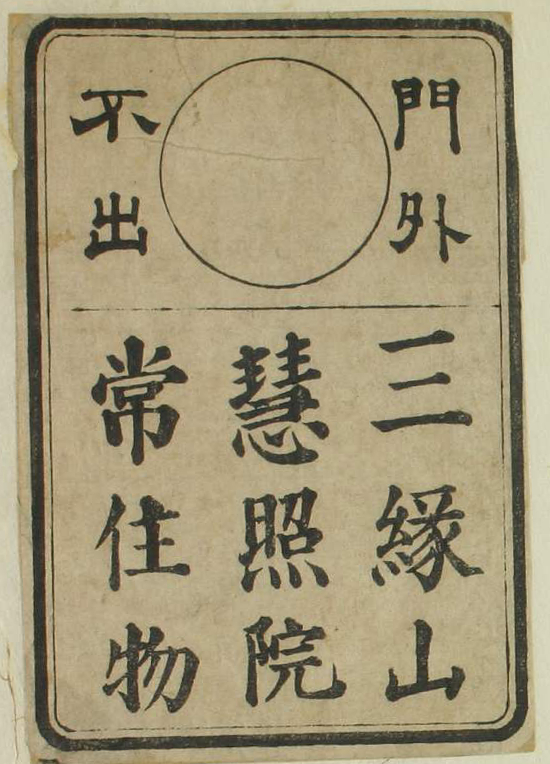 門外
不出
三縁山
慧照院
常住物